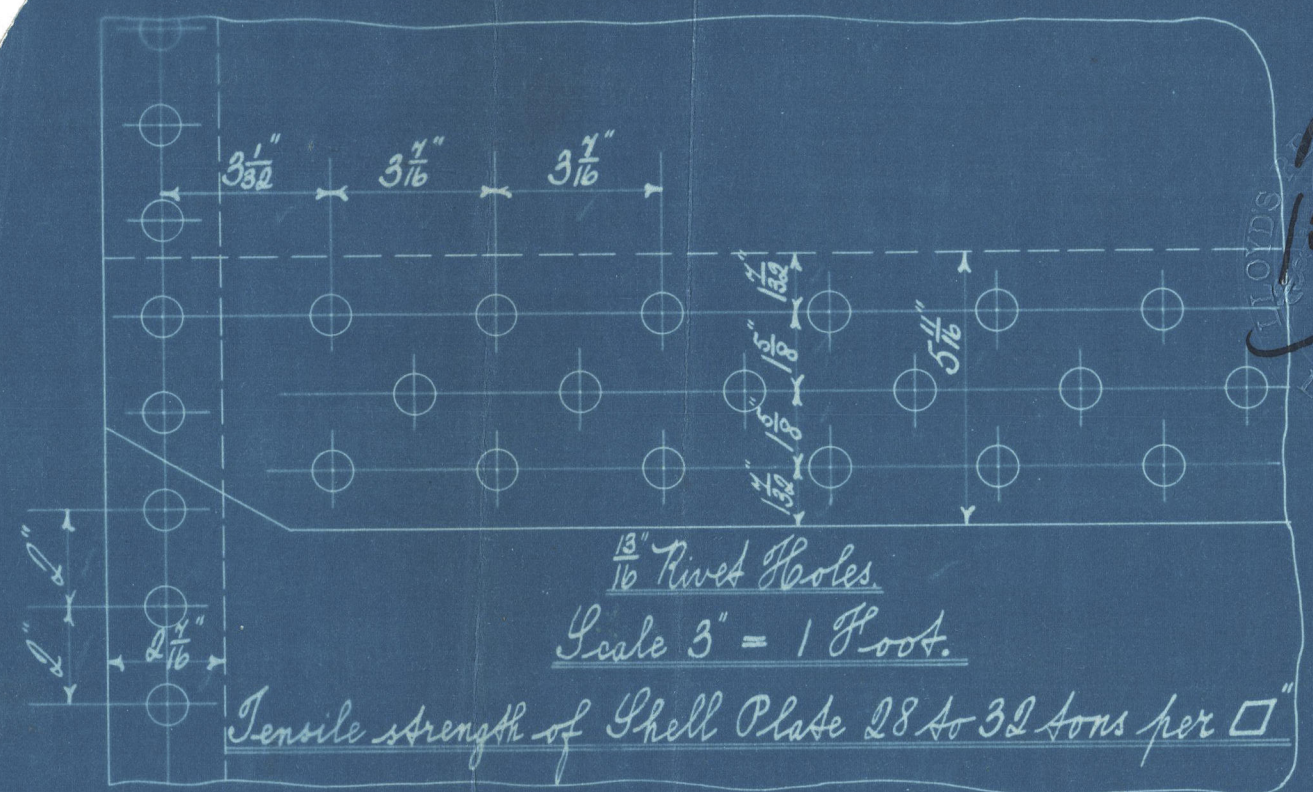 3 1/32" 3 7/16" 3 7/16"
1 7/32"
1 5/8"
5 11/16"
1 5/8"
1 7/32"
2"
2"
2 7/16"
13/16" Rivet Holes.
Scale 3" = 1 Foot.
Tensile strength of Shell Plate 28 to 32 tons per □"
LLOYDS